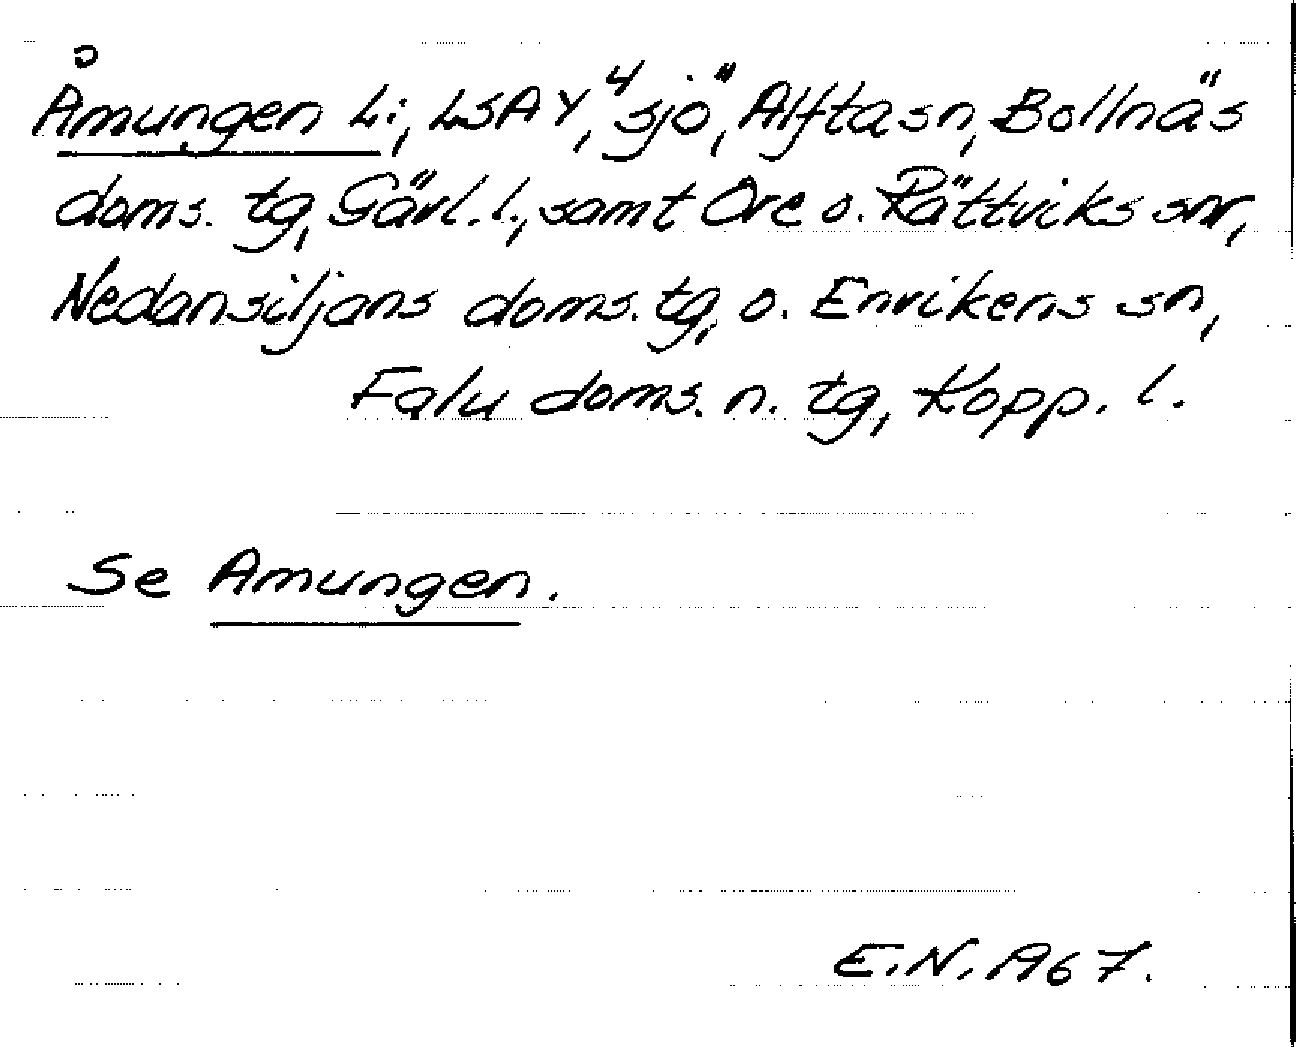 Åmungen Li, LSA Y, "sjö", Alfta sn, Bollnäs
doms. tg, Gävl. l., samt Ore o. Rättviks snr,
Nedansiljans doms. tg, o. Envikens sn,
Falu doms. n. tg, Kopp. l.
Se Amungen.
E.N. A67.